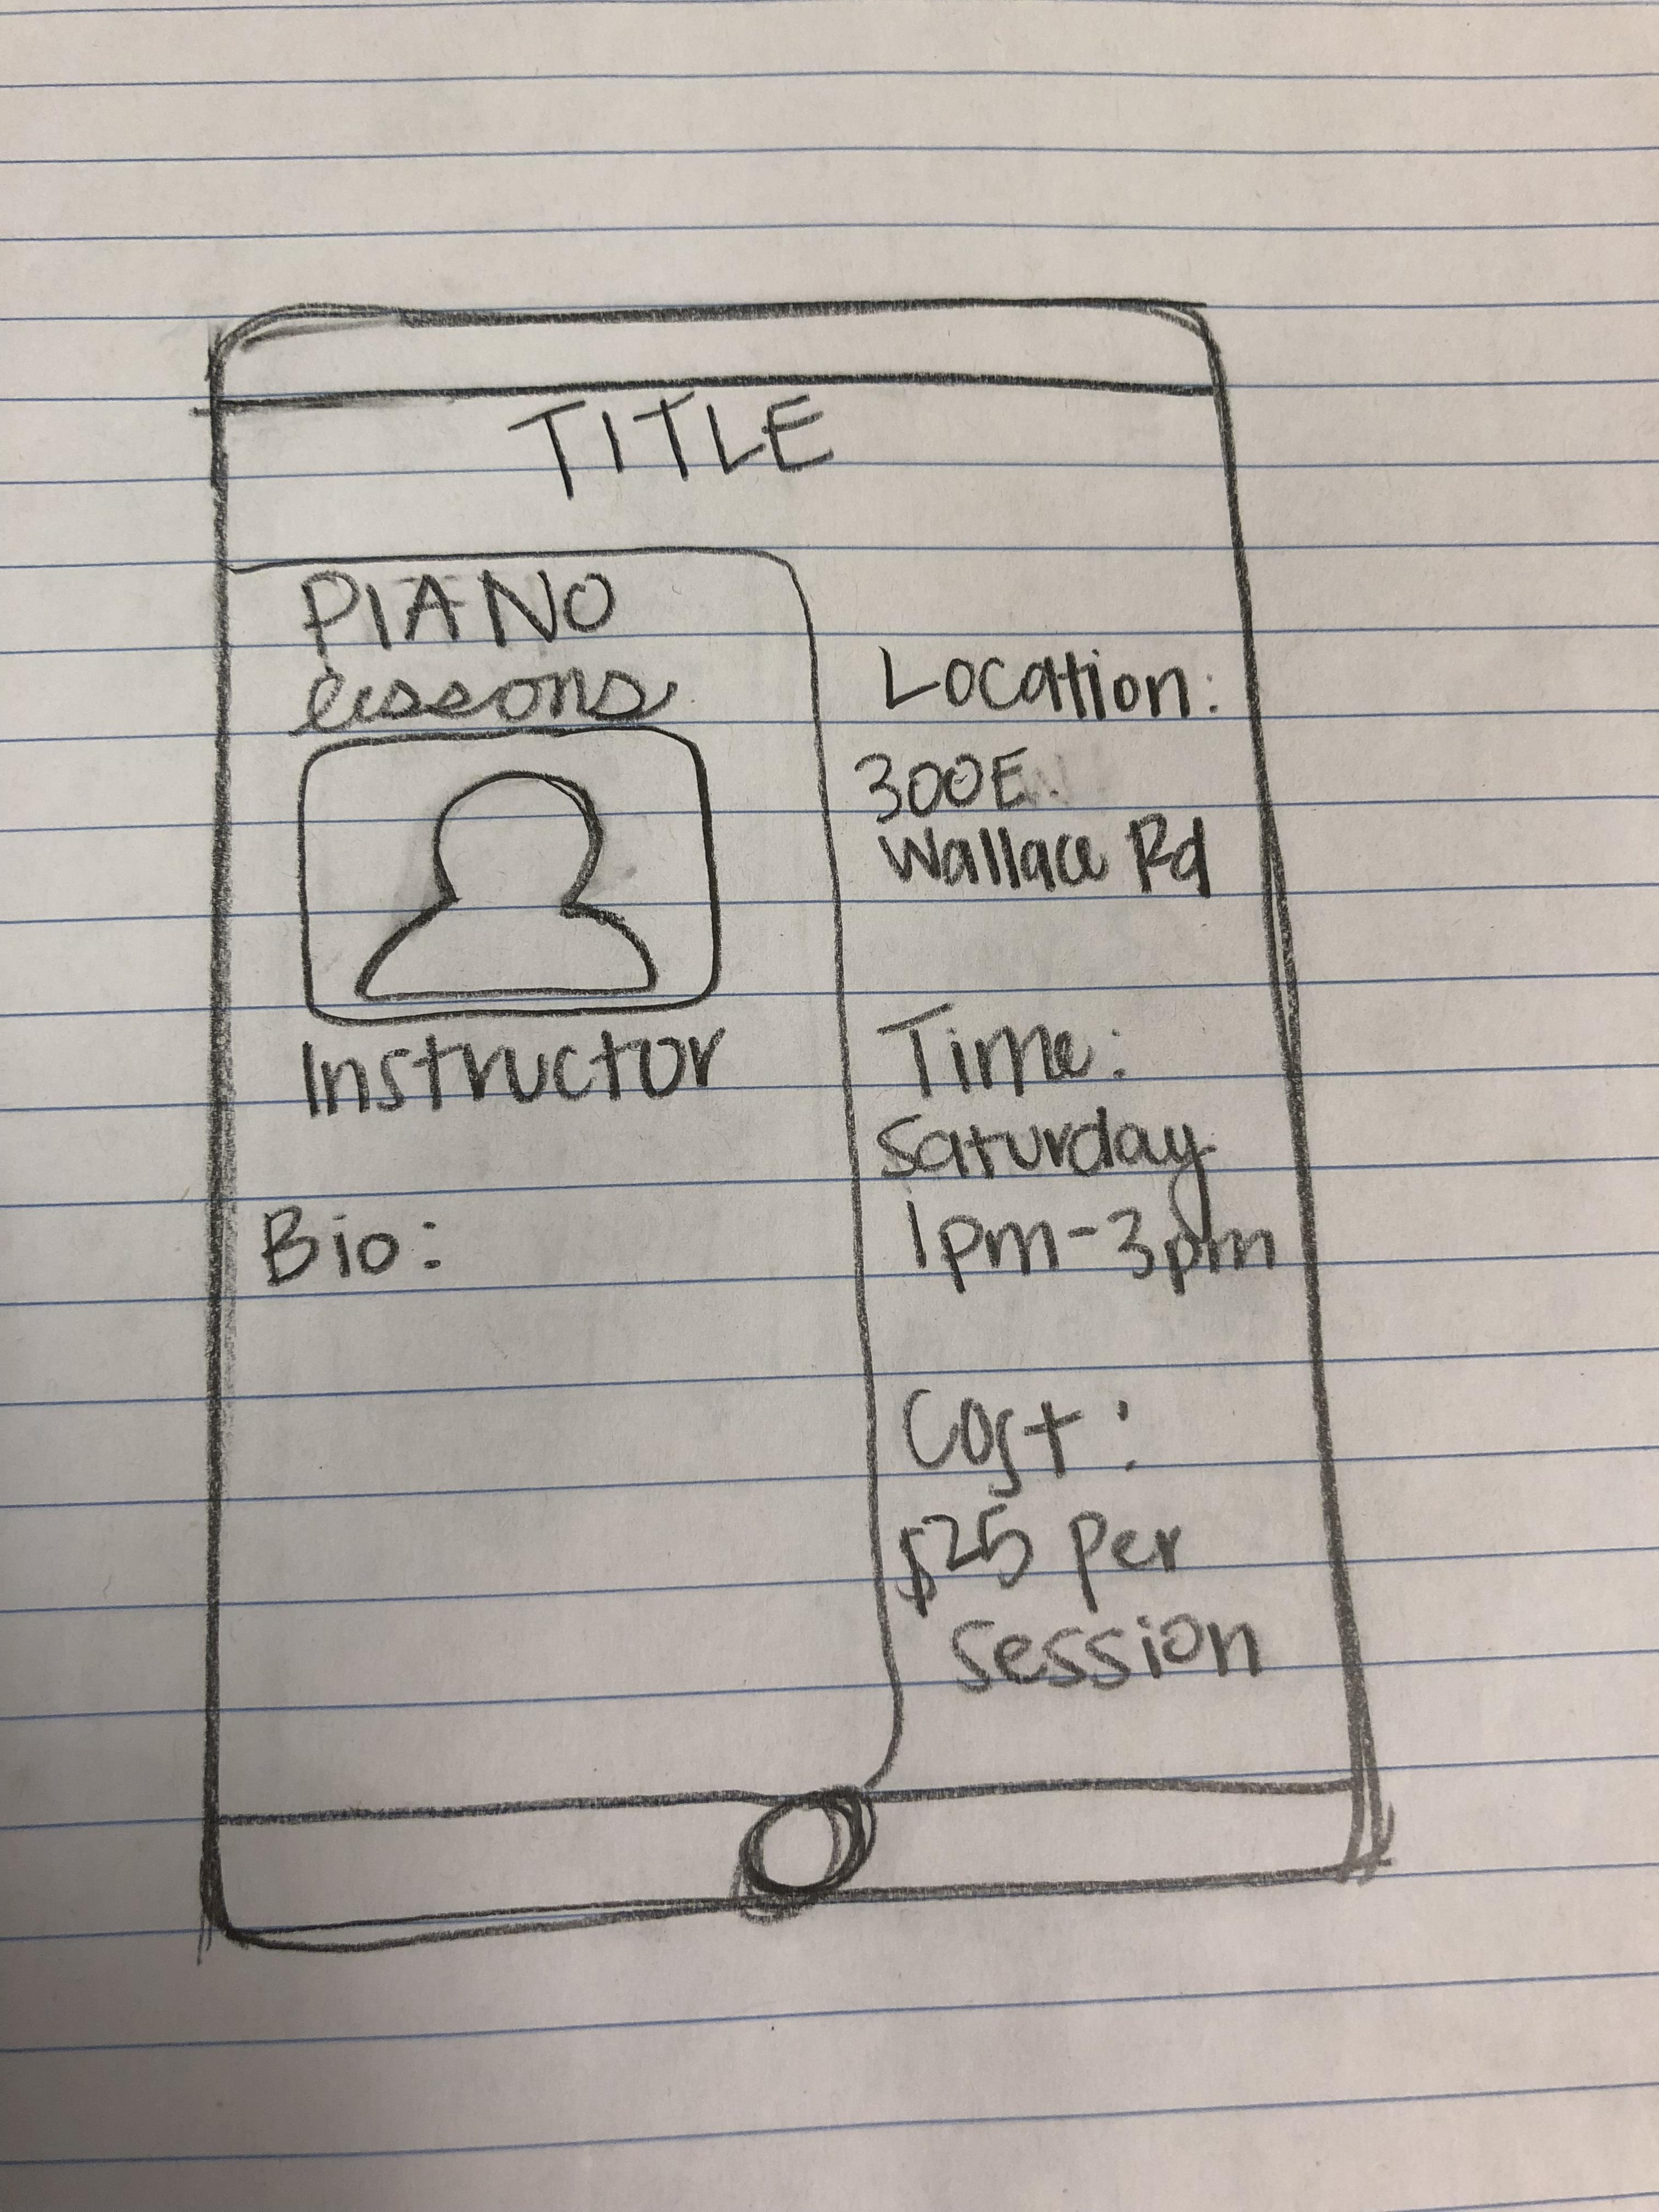 TITLE
PIANO
Lessons
Instructor
Bio:
Location:
300E.
Wallace Rd
Time:
Saturday
1pm-3pm
Cost:
$25 Per
Session